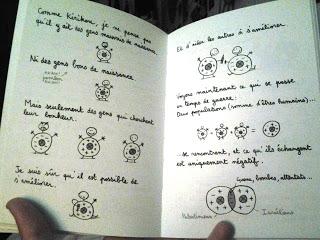 Comme Kirikou, je ne pense pas
qu'il y ait des gens mauvais de naissance.
Ni des gens bons de naissance
Mais seulement des gens qui cherchent
leur bonheur.
Je suis sûr qu'il est possible de
s'améliorer.
Et d'aider les autres à s'améliorer.
Voyons maintenant ce qui se passe
en temps de guerre:
Deux populations (comme d'êtres humains)...
...se rencontrent, et ce qu'ils échangent
est uniquement négatif.
bombes, attentats...
Palestiniens
Israéliens